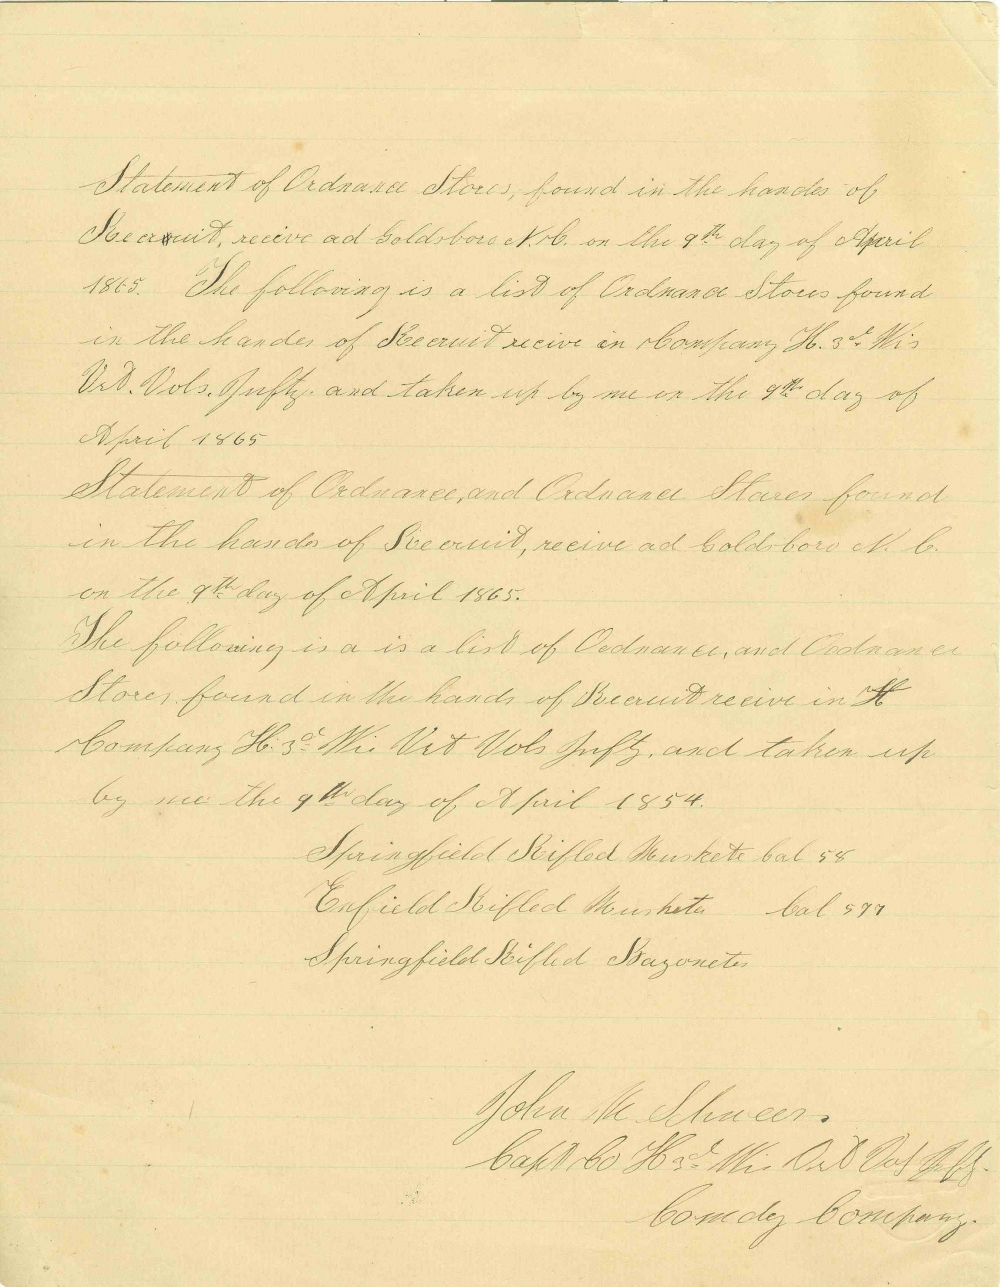 Statement of Ordnance Stores, found in the handes of
Recruit, recive ad Goldsboro N.C. on the 9th day of April
1865. The following is a list of Ordnance Stores found
in the handes of Recruit recive in Company H. 3d Wis
Vet. Vols. Infty. and taken up by me on the 9th day of
April 1865
Statement of Ordnance, and Ordnance Stores found
in the hands of Recruit, recive ad Goldsboro N. C.
on the 9th day of April 1865.
The following is a is a list of Ordnance, and Ordnance
Stores found in the hands of Recruit recive in H
Company H. 3d Wis Vet Vols Infty. and taken up
by me the 9th day of April 1854.
Springfield Rifled Muskets Cal 58
Enfield Rifled Muskets Cal 577
Springfield Rifled Bayonets
John M Schweers.
Capt Co H 3d Wis Vet Vol Infty.
Comdg Company.